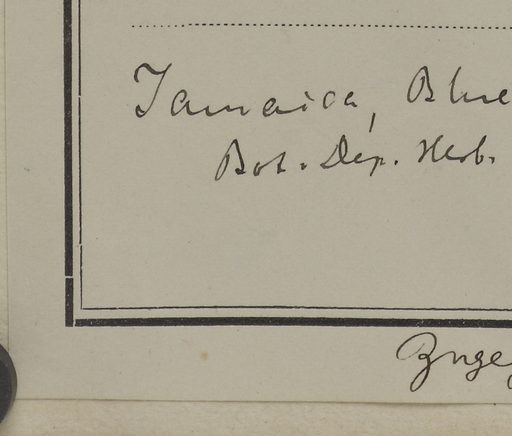 Jamaica, Blue
Bot. Dep. Herb.